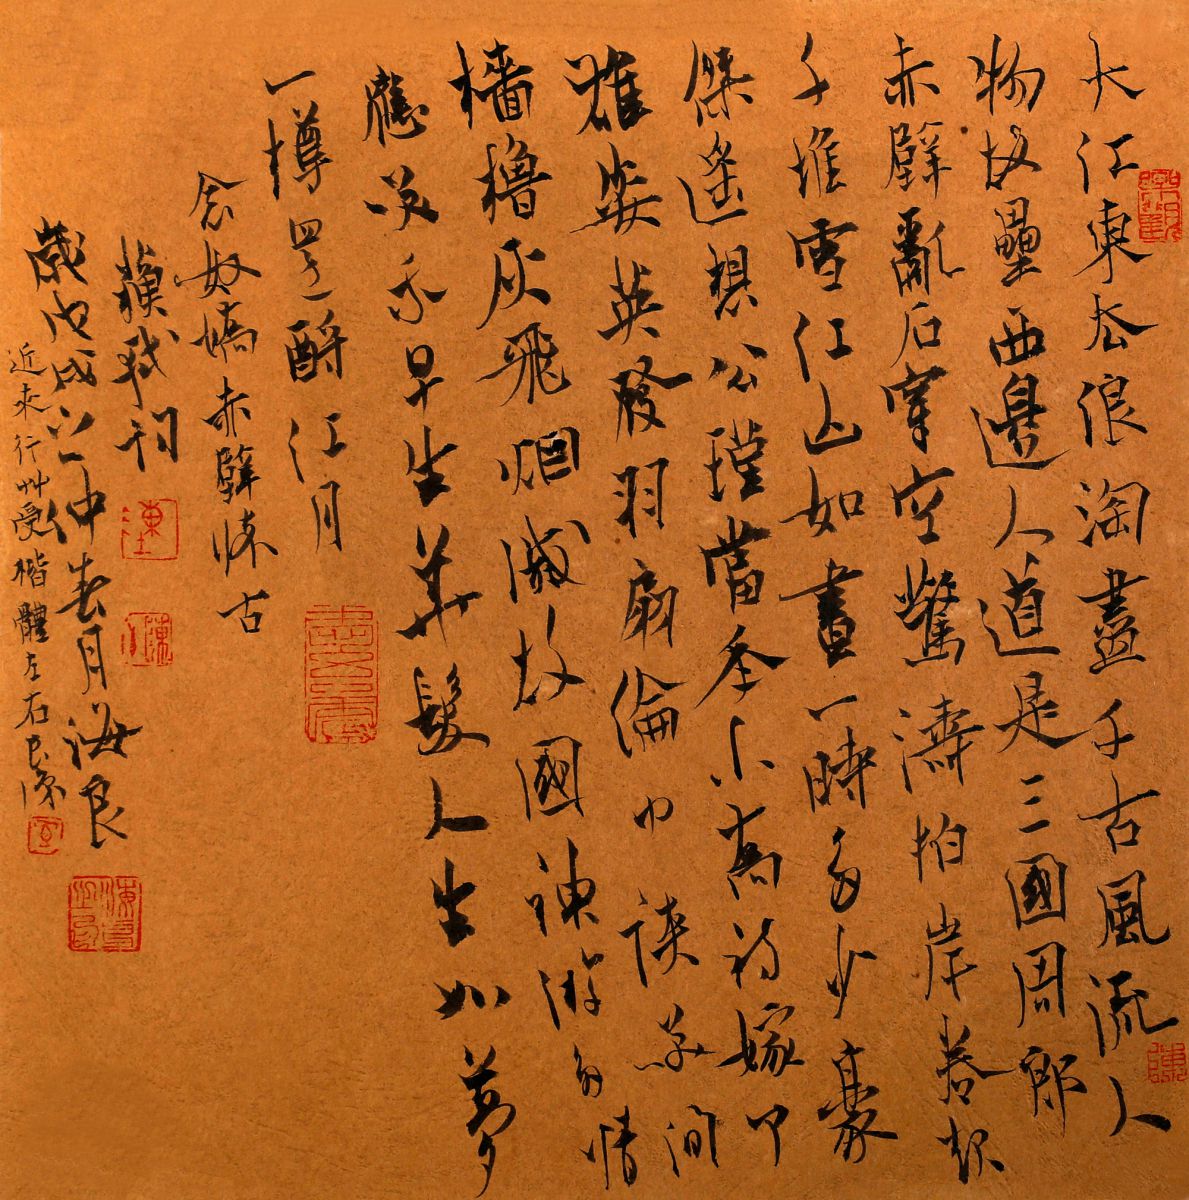 大江東去浪淘盡千古風流人
物故壘西邊人道是三國周郎
赤壁亂石穿空驚濤拍岸卷起
千堆雪江山如畫一時多少豪
傑遙想公瑾當年小喬初嫁了
雄姿英發羽扇綸巾談笑間
檣櫓灰飛烟滅故國神游多情
應笑我早生華髮人生如夢
一樽還酹江月
念奴嬌赤壁懷古
蘇軾詞
歲戊戌之仲春月海良
近来行艸受楷體左右良深